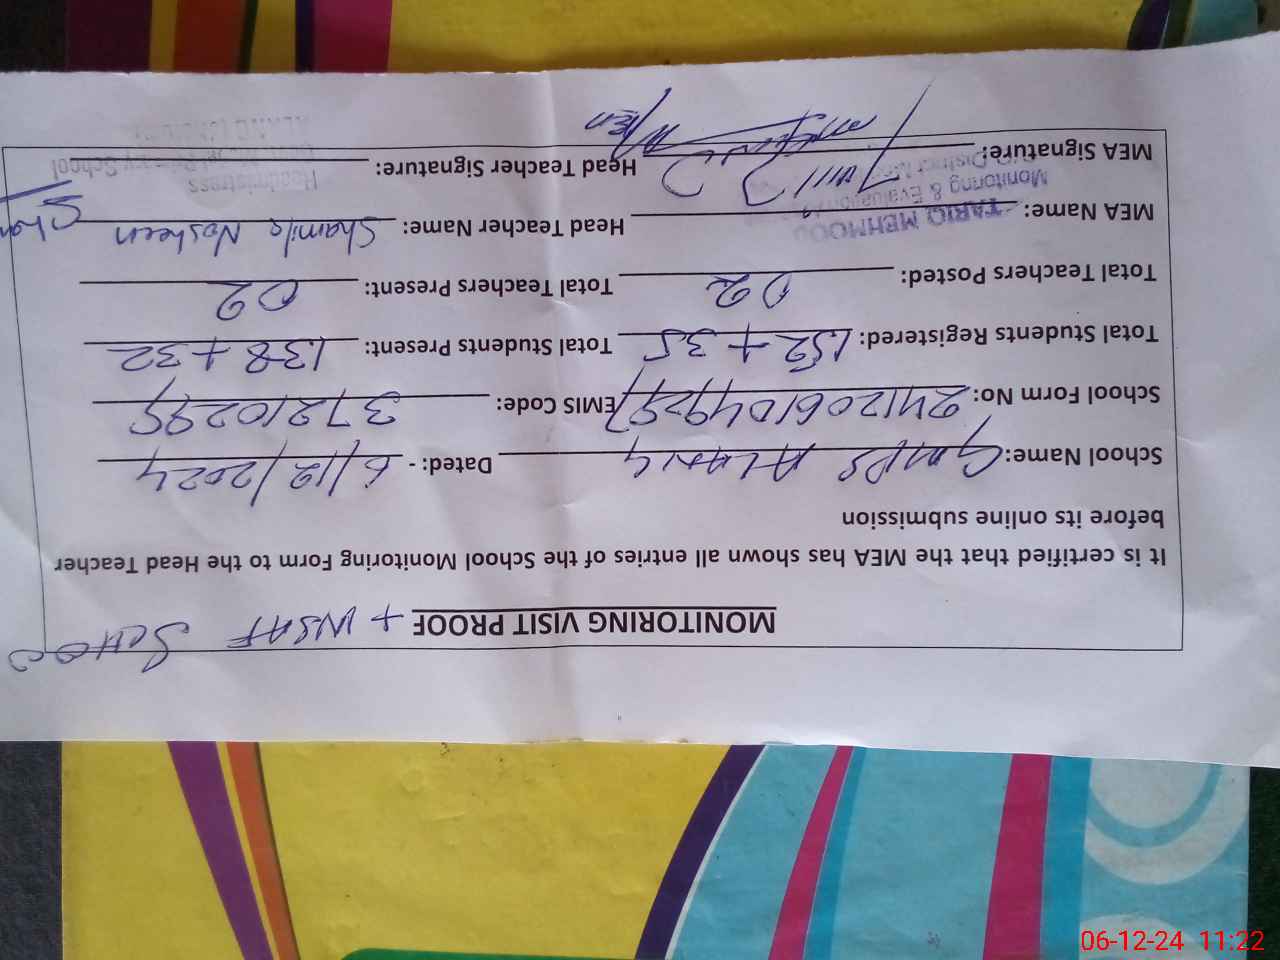 MONITORING VISIT PROOF + INSAF SCHOO
It is certified that the MEA has shown all entries of the School Monitoring Form to the Head Teacher
before its online submission
School Name: GMPS Dated: - 6/12/2024
School Form No: EMIS Code: 37210295
Total Students Registered: 152 + 35 Total Students Present: 138 + 32
Total Teachers Posted: 02 Total Teachers Present: 02
MEA Name: TARIQ MEHMOOD Head Teacher Name: Shamila Nosheen
Monitoring & Evaluation
MEA Signature: Head Teacher Signature:
District
Headmistress
Primary School
06-12-24 11:22